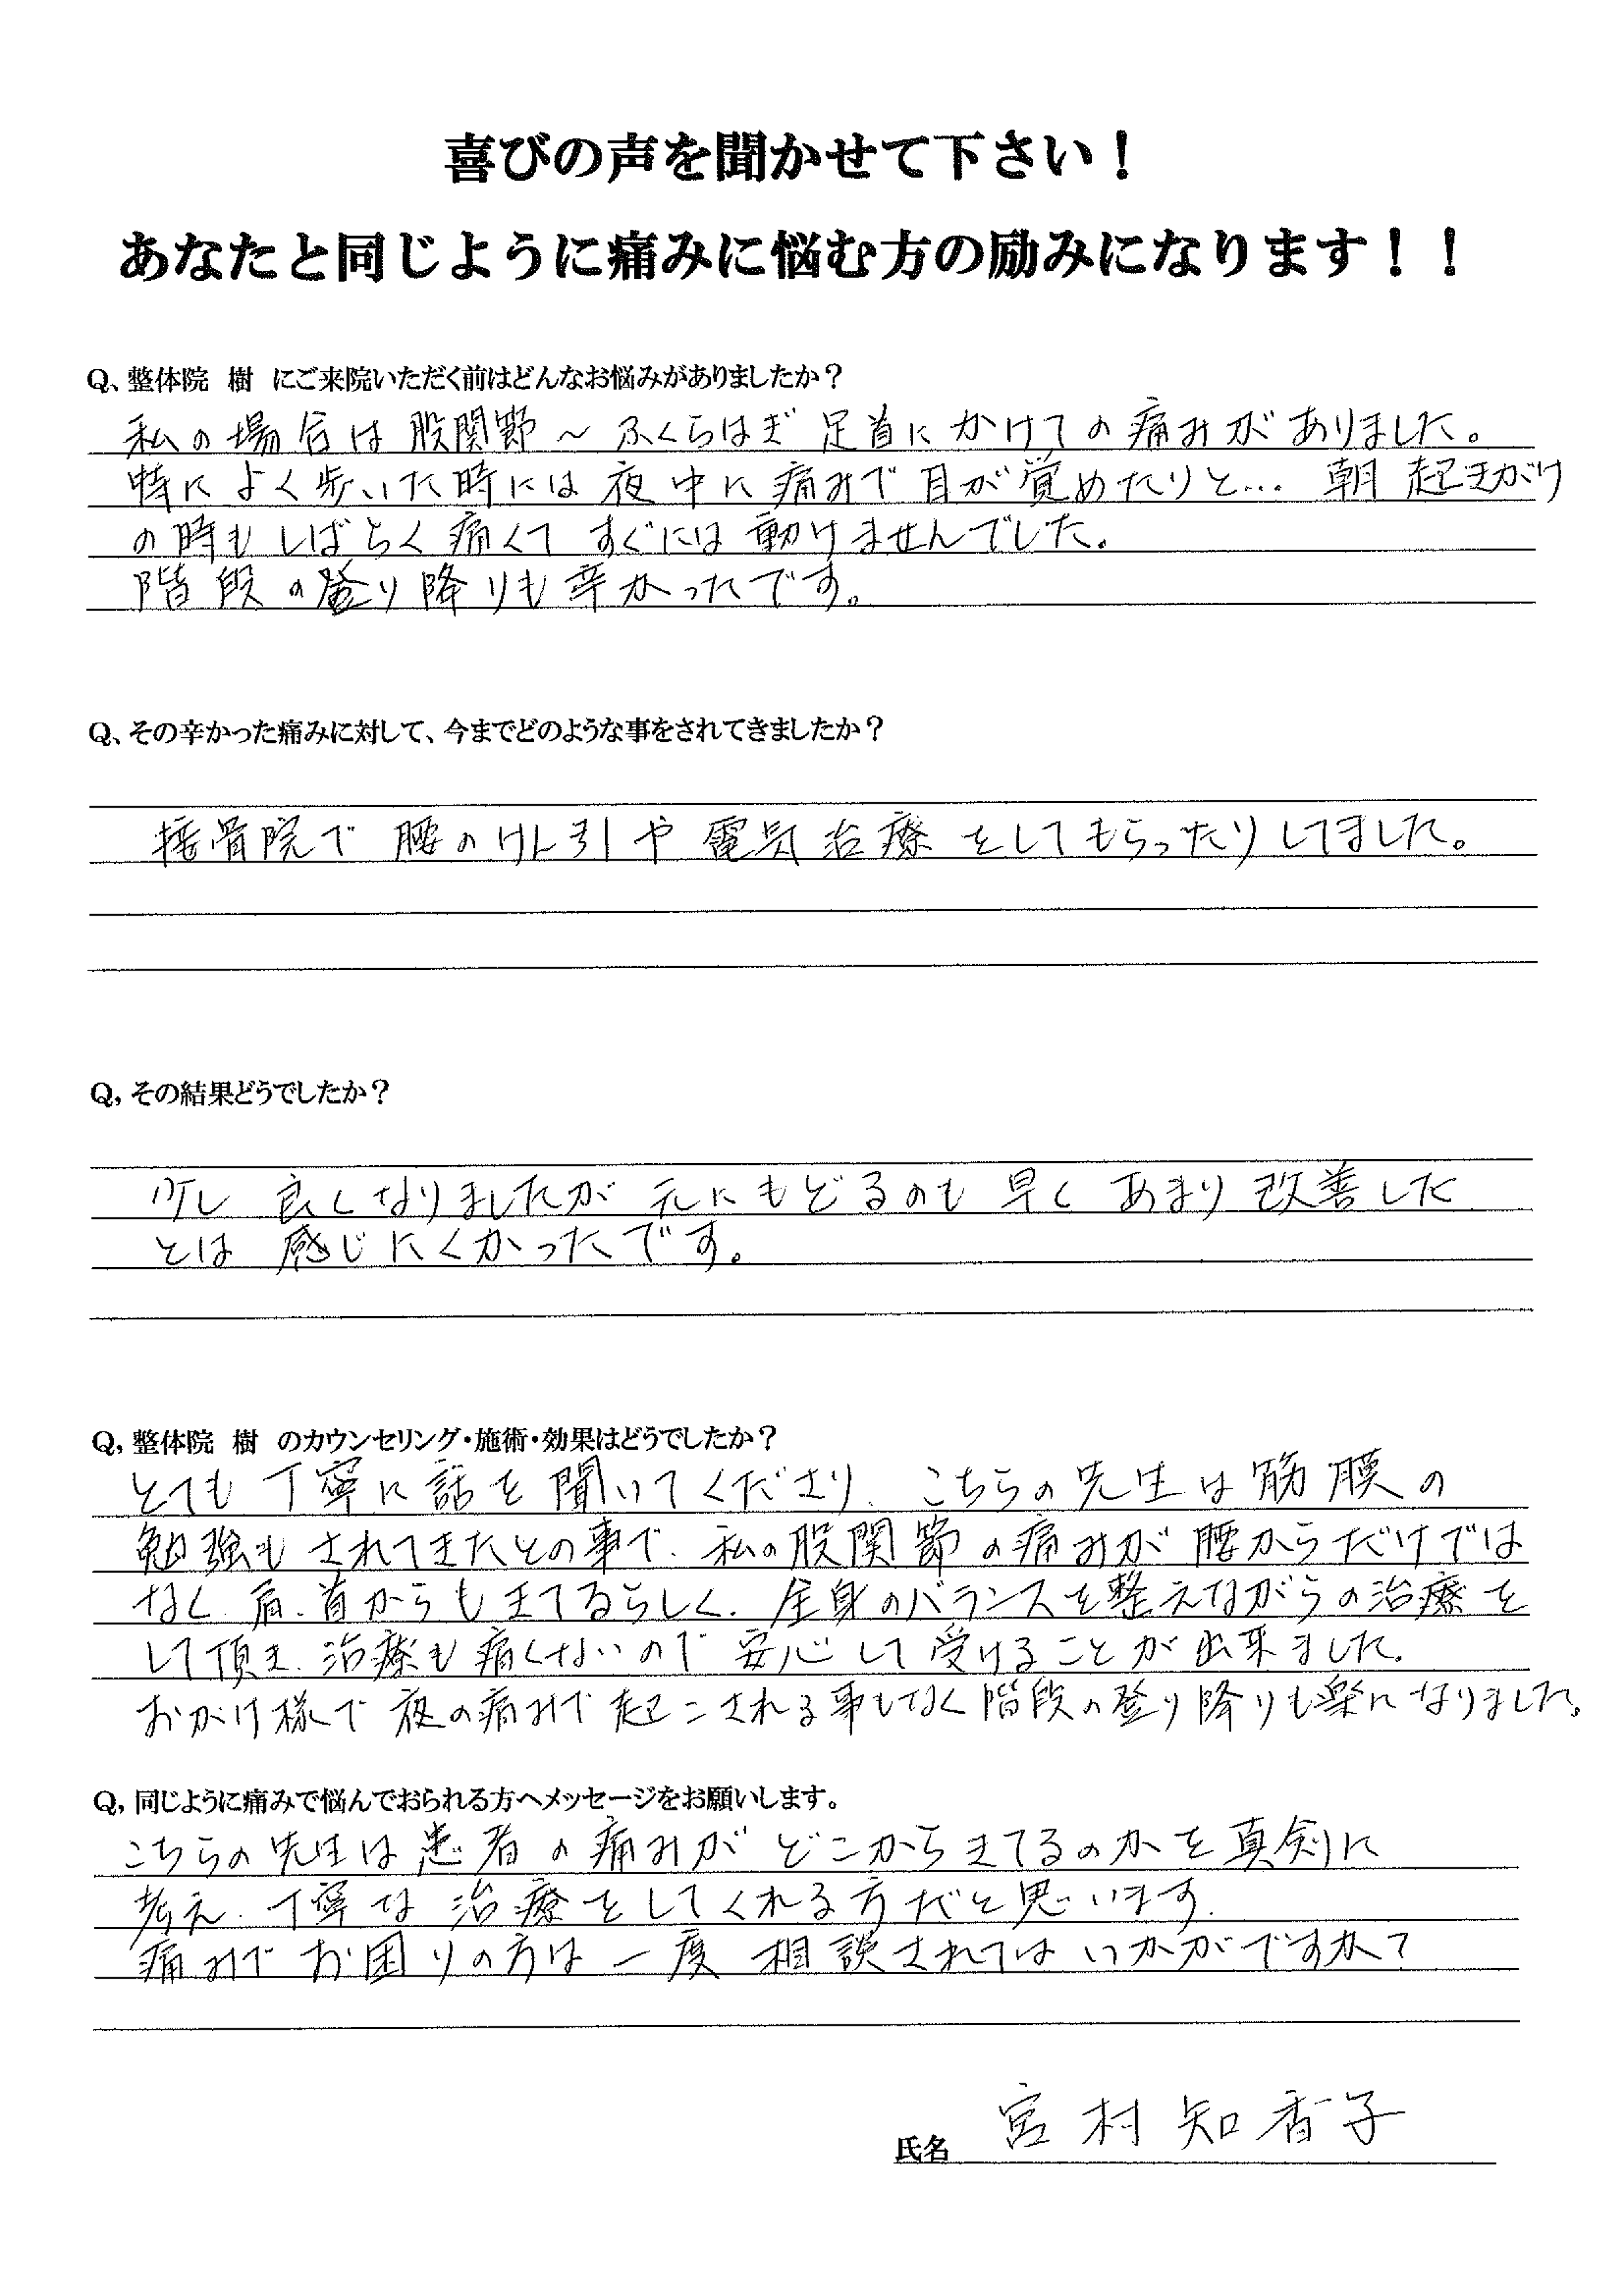 喜びの声を聞かせて下さい！
あなたと同じように痛みに悩む方の励みになります！！
Q、整体院　樹　にご来院いただく前はどんなお悩みがありましたか？
私の場合は 股関野～ふくらはぎ 足首にかけての痛みがありました。
特によく歩いた時には 夜中に痛みで目が覚めたりと… 朝 起きがけ
の時もしばらく痛くて すぐには動けませんでした。
階段の登り降りも辛かったです。
Q、その辛かった痛みに対して、今までどのような事をされてきましたか？
接骨院で 腰のけん引や 電気治療をしてもらったりしてました。
Q, その結果どうでしたか？
少し 良くなりましたが 元にもどるのも 早く あまり改善した
とは 感じにくかったです。
Q, 整体院　樹　のカウンセリング・施術・効果はどうでしたか？
とても 丁寧に話を聞いてくださり、こちらの先生は筋膜の
勉強もされてきたとの事で、私の股関節の痛みが 腰からだけでは
なく 肩、首からもきてるらしく、全身のバランスを整えながらの治療を
して頂き、治療も痛くないので 安心して受けることが出来ました。
おかげ様で 夜の痛みで起こされる事もなく階段の登り降りも楽になりました。
Q, 同じように痛みで悩んでおられる方へメッセージをお願いします。
こちらの先生は患者の痛みが どこからきてるのかを真剣に
考え、丁寧な 治療をしてくれる方だと思います。
痛みで お困りの方は 一度 相談されてはいかがですか？
氏名 宮村知香子